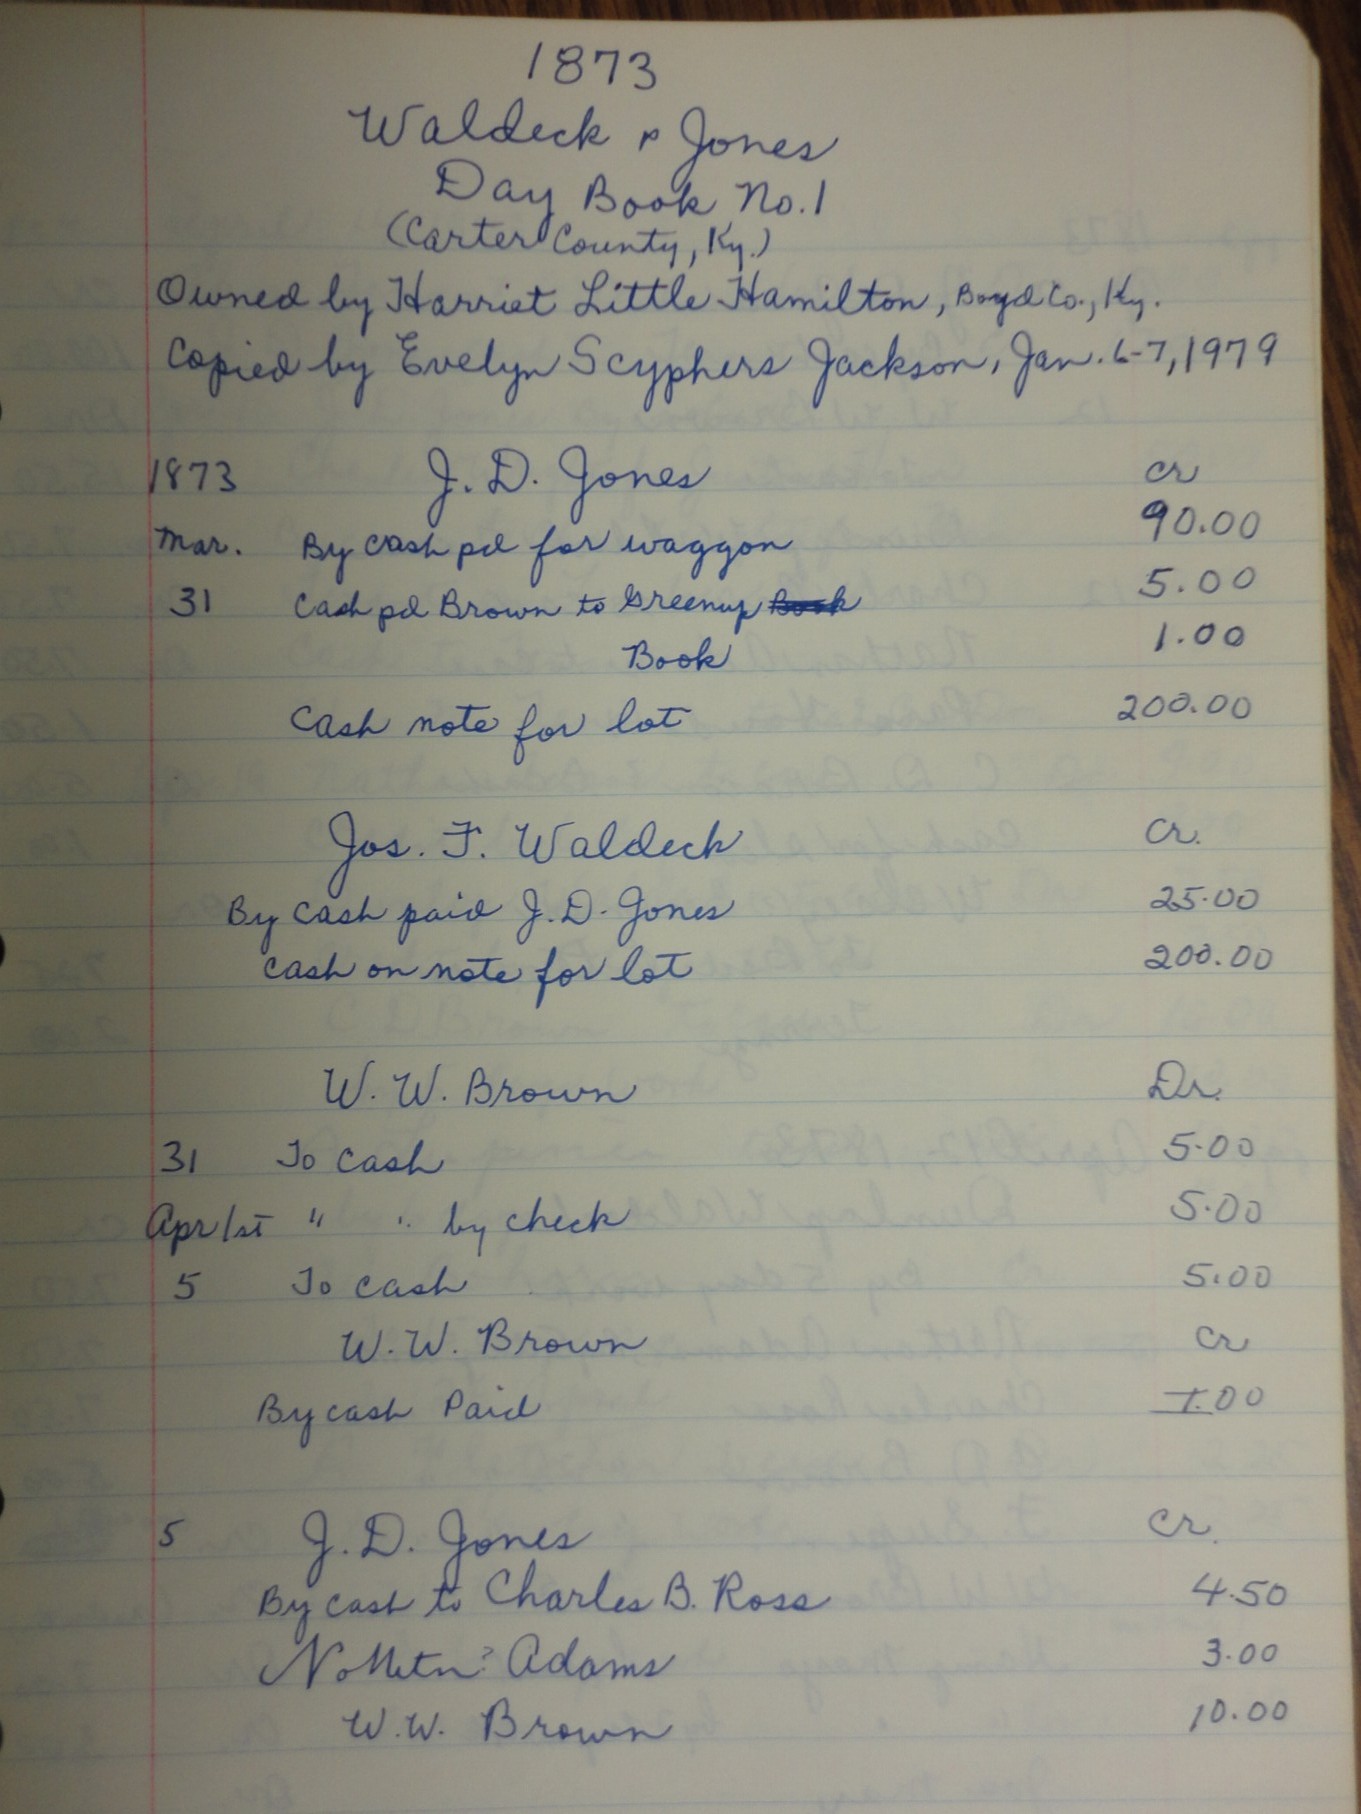 1873
Waldeck & Jones
Day Book No. 1
(Carter County, Ky.)
Owned by Harriet Little Hamilton, Boyd Co., Ky.
Copied by Evelyn Scyphers Jackson, Jan. 6-7, 1979
1873 J. D. Jones cr
Mar. By cash pd for waggon 90.00
31 Cash pd Brown to Greenup Book 5.00
Book 1.00
Cash note for lot 200.00
Jos. F. Waldeck Cr.
By cash paid J. D. Jones 25.00
cash on note for lot 200.00
W. W. Brown Dr.
31 To cash 5.00
Apr 1st " " by check 5.00
5 To cash 5.00
W. W. Brown cr
By cash Paid 1.00
5 J. D. Jones cr.
By cash to Charles B. Ross 4.50
Adams 3.00
W. W. Brown 10.00